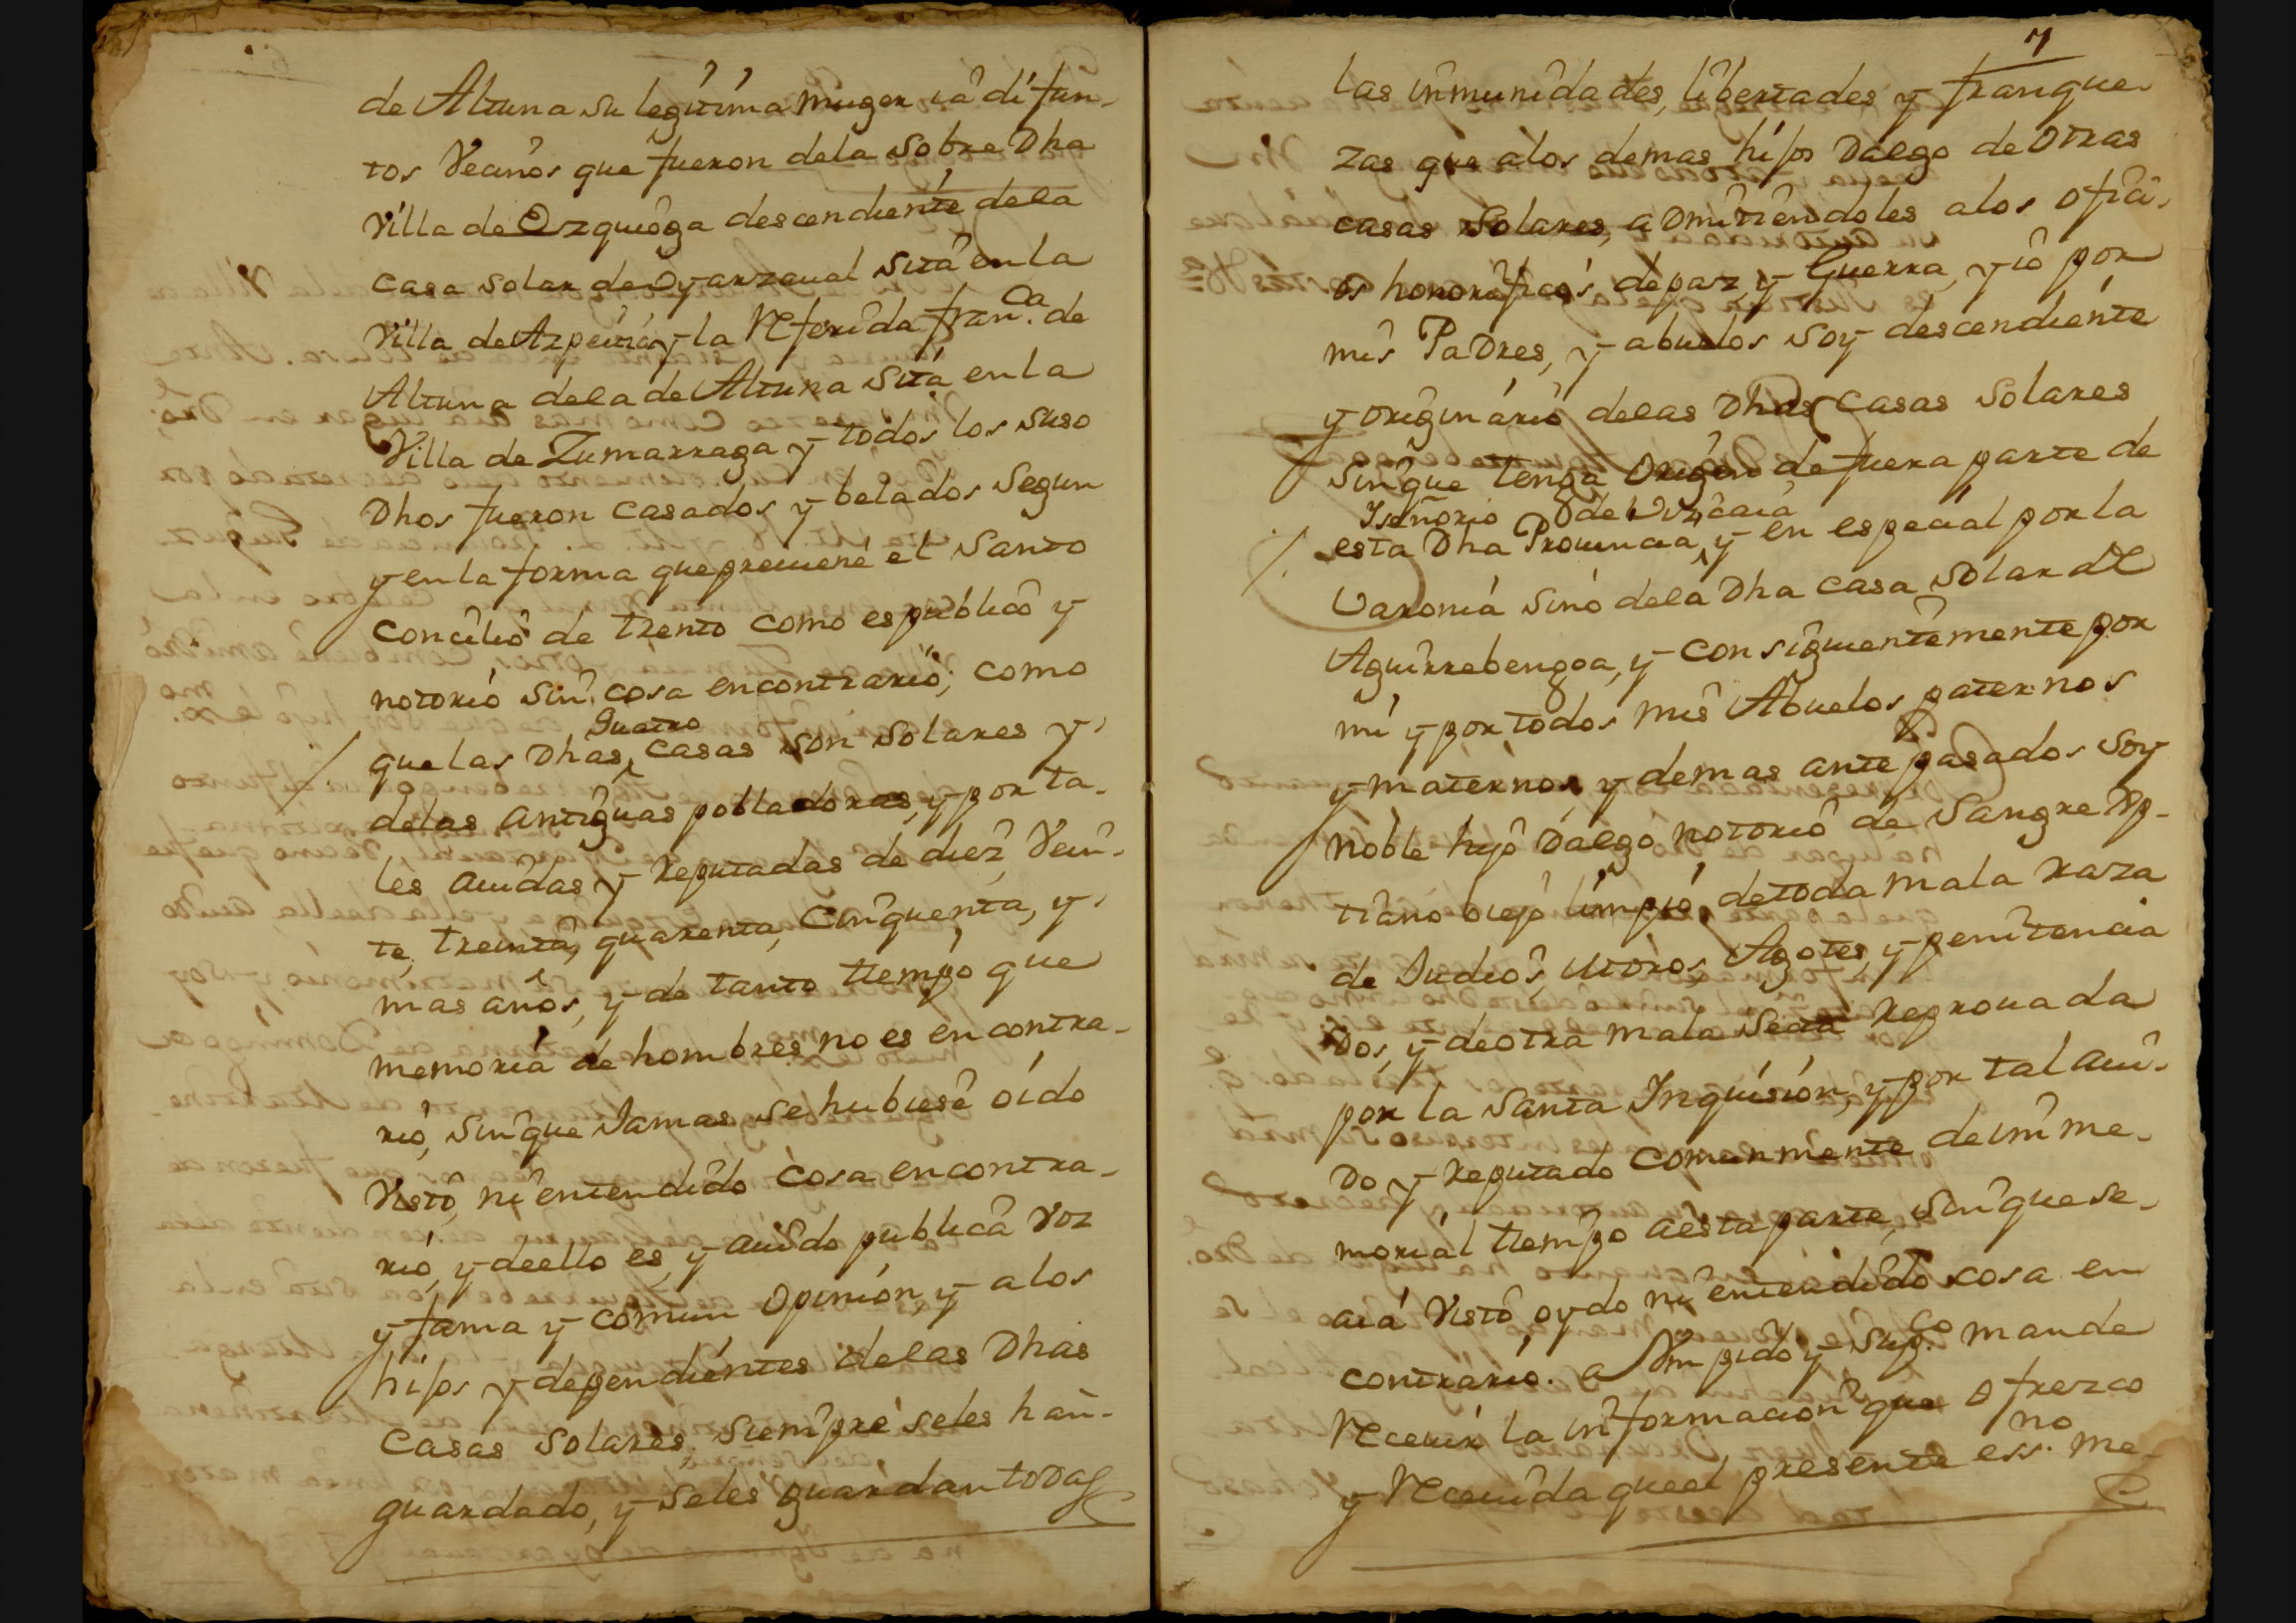 de Altuna su legitima muger iâ difun-
tos Vecinos que fueron dela sobre Dha
Villa de Ezquioga descendiente dela
casa solar de Oyarzaual sita en la
Villa de Azpeitia y la Referida fran.ca de
Altuna dela de Altuna sita en la
Villa de Zumarraga y todos los suso
Dhos fueron casados y belados segun
y en la forma que preuiene el Santo
Concilio de trento como es publico y
notorio sin cosa en contrario; como
Quatro
que las Dhas casas son solares y
delas antiguas pobladoras, y por ta-
les auidas y Reputadas de diez, Vein-
te, treinta, quarenta, cinquenta, y
mas años, y de tanto tiempo que
memoria de hombres no es en contra-
rio, sin que Jamas se hubiese oido
Visto, ni entendido cosa en contra-
rio, y deello es, y auido publica voz
y fama y comun opinion, y a los
hijos y dependientes delas Dhas
Casas Solares, siempre seles han
guardado, y seles guardan todas
7
las inmunidades, libertades y franque-
zas que alos demas hijos Dalgo de Otras
casas Solares, aDmitiendoles alos ofici-
os honorificos de paz, y Guerra, y io por
mis PaDres, y abuelos soy descendiente
y originario delas Dhas Casas Solares
Sin que tenga Origen de fuera parte de
Iseñorio de Vizcaia
esta Dha Prouincia, y en especial por la
Varonia sino dela Dha casa solar de
Aguirrebengoa, y consiguientemente por
mi y por todos mis Abuelos paternos
y maternos y demas ante pasados soy
noble hijo Dalgo notorio de Sangre Xp-
tiano viejo limpio, de toda mala raza
de Judios, Moros, Agotes, y penitencia
Dos, y de otra mala Secta Reprouada
por la Santa Inquisision, y por tal aui-
Do y Reputado comunmente de inme-
morial tiempo a esta parte, sin que se
aia visto, oydo ni entendido cosa en
contrario. a Vm pido y sup.co mande
Receuir la informacion que ofrezco
y Receuida que el presente ess.no me